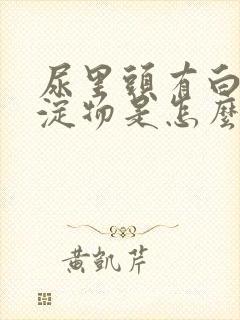 尿里頭有白
淀物是怎麼
黄凱芹